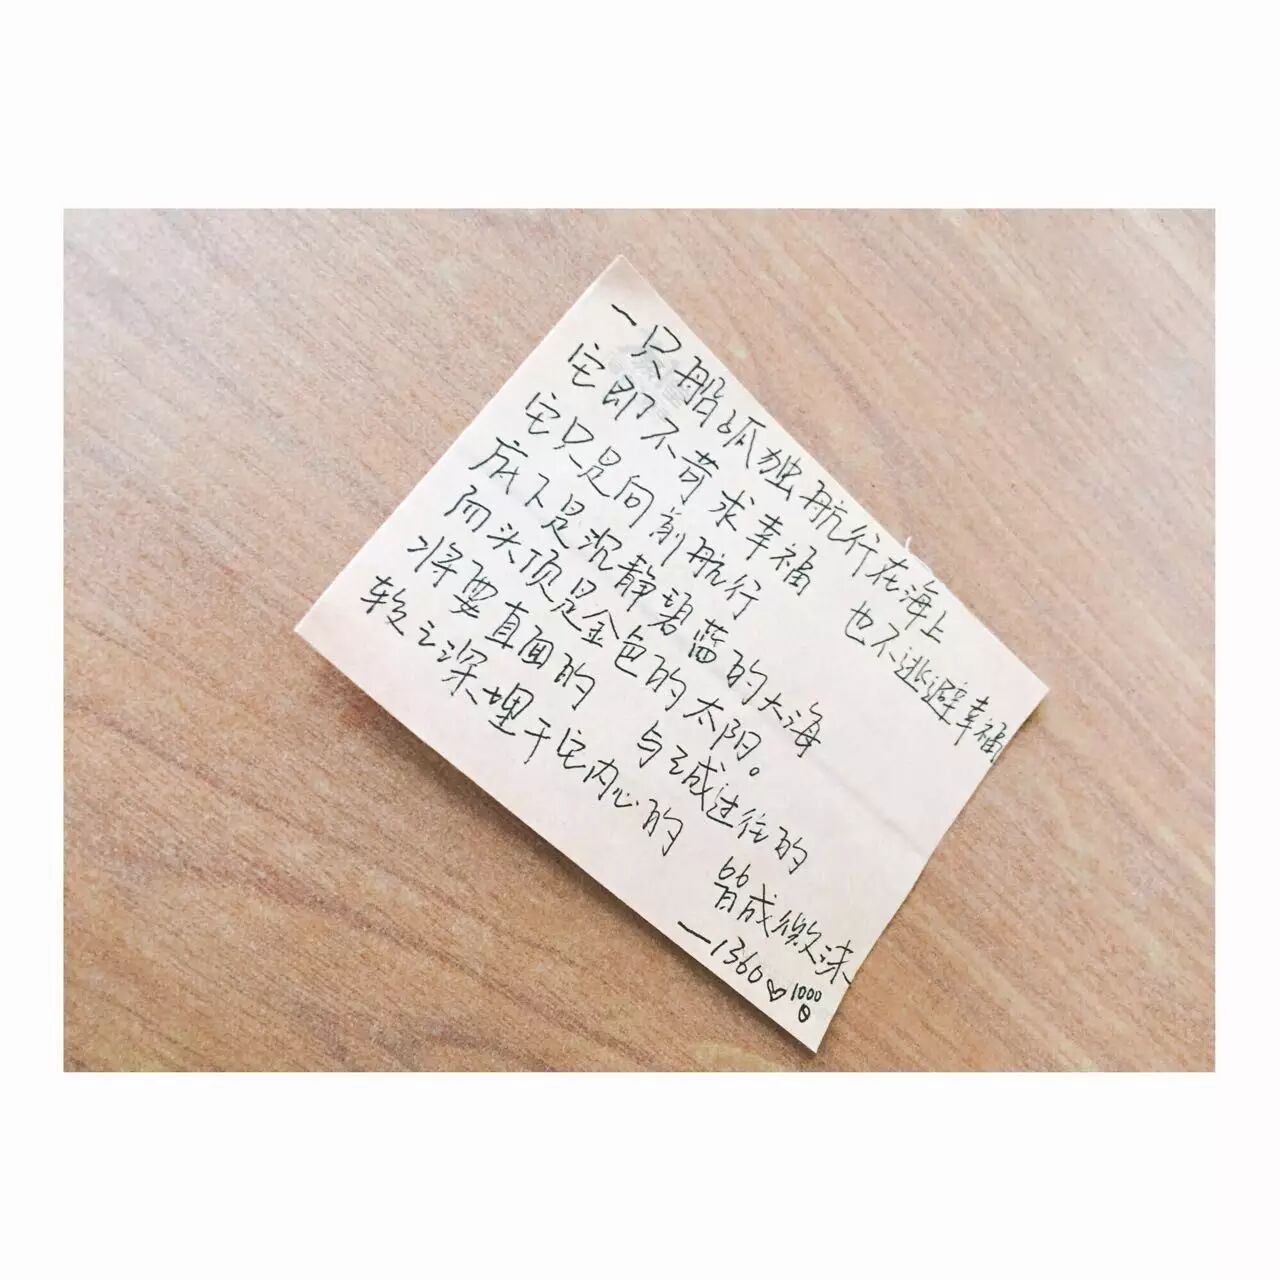 一只船孤独航行在海上
它即不苛求幸福 也不逃避幸福
它只是向前航行
底下是沉静碧蓝的大海
而头顶是金色的太阳。
将要直面的 与已成过往的
较之深埋于它内心的 皆成微沫
—1360♡1000日